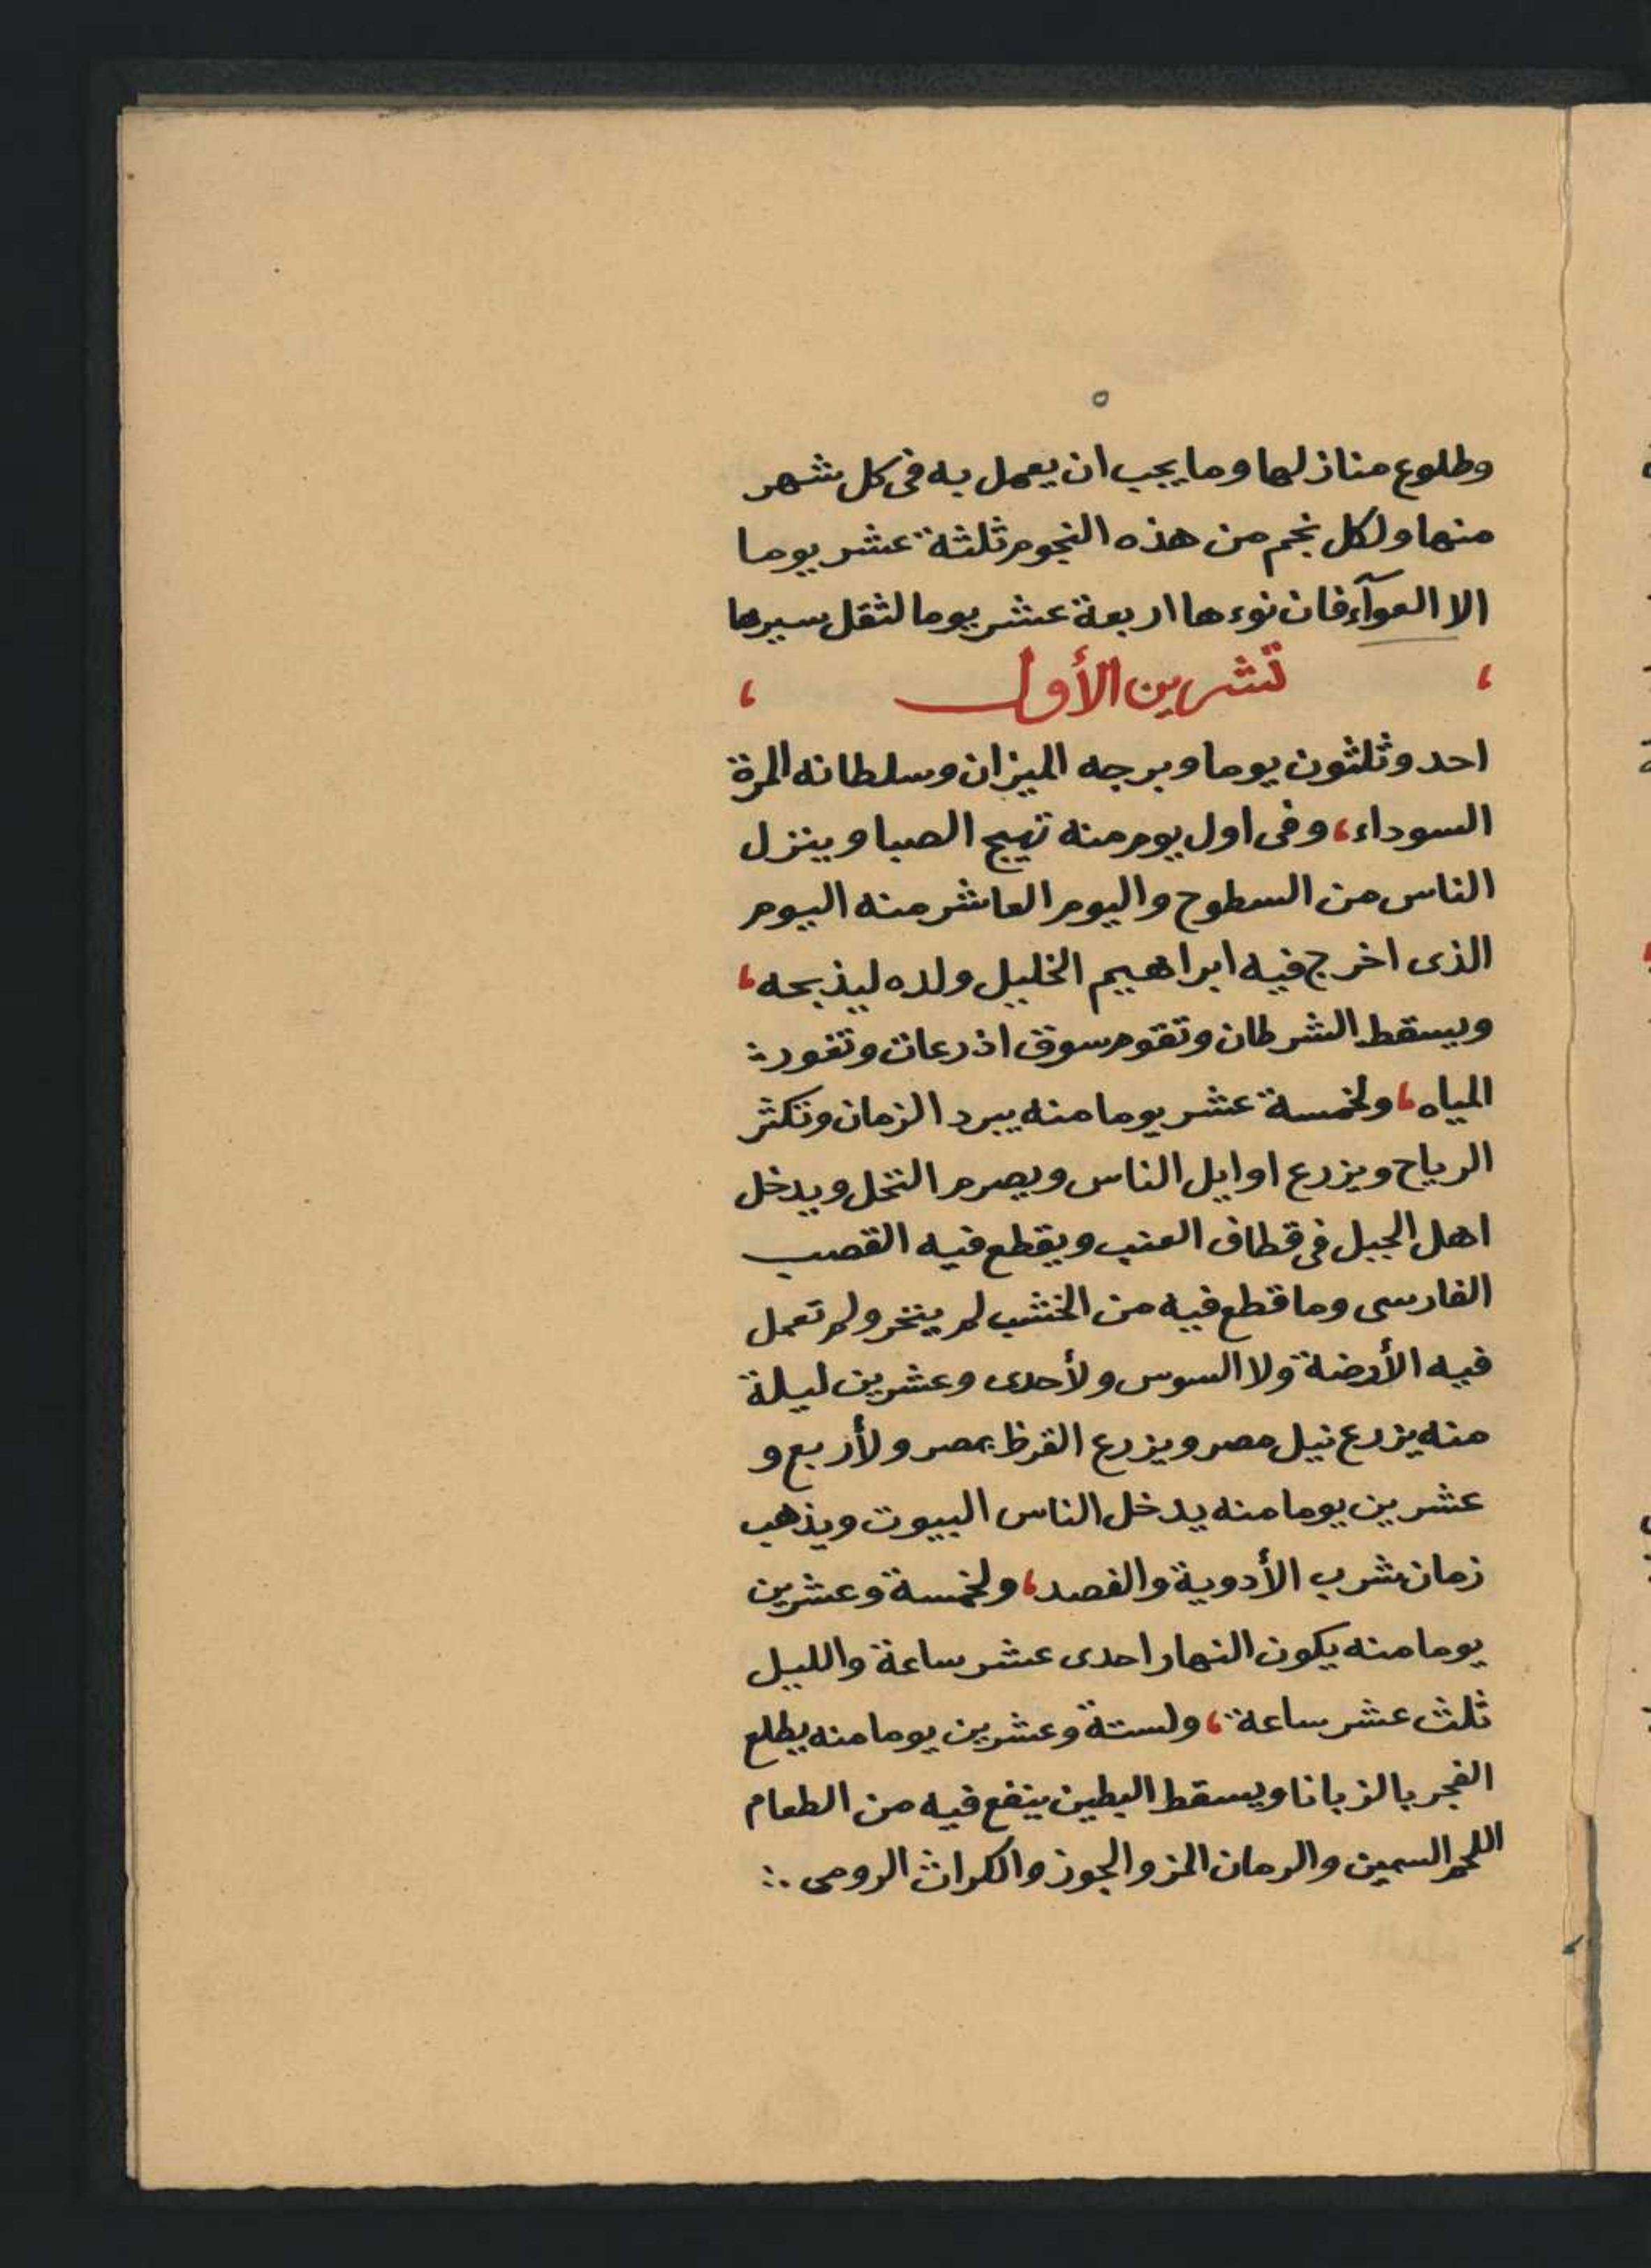 ٥
وطلوع منازلها وما يجب ان يعمل به فى كل شهر
منها ولكل نجم من هذه النجوم ثلثة عشر يوما
الا العوآء فان نوءها اربعة عشر يوما لثقل سيرها
، تشرين الأول ،
احد وثلثون يوما وبرجه الميزان وسلطانه المرة
السوداء، وفى اول يوم منه تهيج الصبا وينزل
الناس من السطوح واليوم العاشر منه اليوم
الذى اخرج فيه ابراهيم الخليل ولده ليذبحه،
ويسقط الشرطان وتقوم سوق اذرعات وتغور
المياه، ولخمسة عشر يوما منه يبرد الزمان وتكثر
الرياح ويزرع اوايل الناس ويصرم النخل ويدخل
اهل الجبل فى قطاف العنب ويقطع فيه القصب
الفارسى وما قطع فيه من الخشب لم ينخر ولم تعمل
فيه الأرضة ولا السوس ولأحدى وعشرين ليلة
منه يزرع نيل مصر ويزرع القرظ بمصر ولأربع و
عشرين يوما منه يدخل الناس البيوت ويذهب
زمان شرب الأدوية والفصد، ولخمسة وعشرين
يوما منه يكون النهار احدى عشر ساعة والليل
ثلث عشر ساعة، ولستة وعشرين يوما منه يطلع
الفجر بالزبانا ويسقط البطين ينفع فيه من الطعام
اللحم السمين والرمان المز والجوز والكراث الرومى ∴